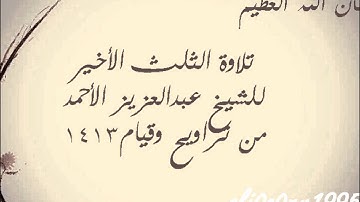 الله العظيم
تلاوة الثلث الأخير
للشيخ عبدالعزيز الأحمد
من تراويح وقيام ١٤١٣